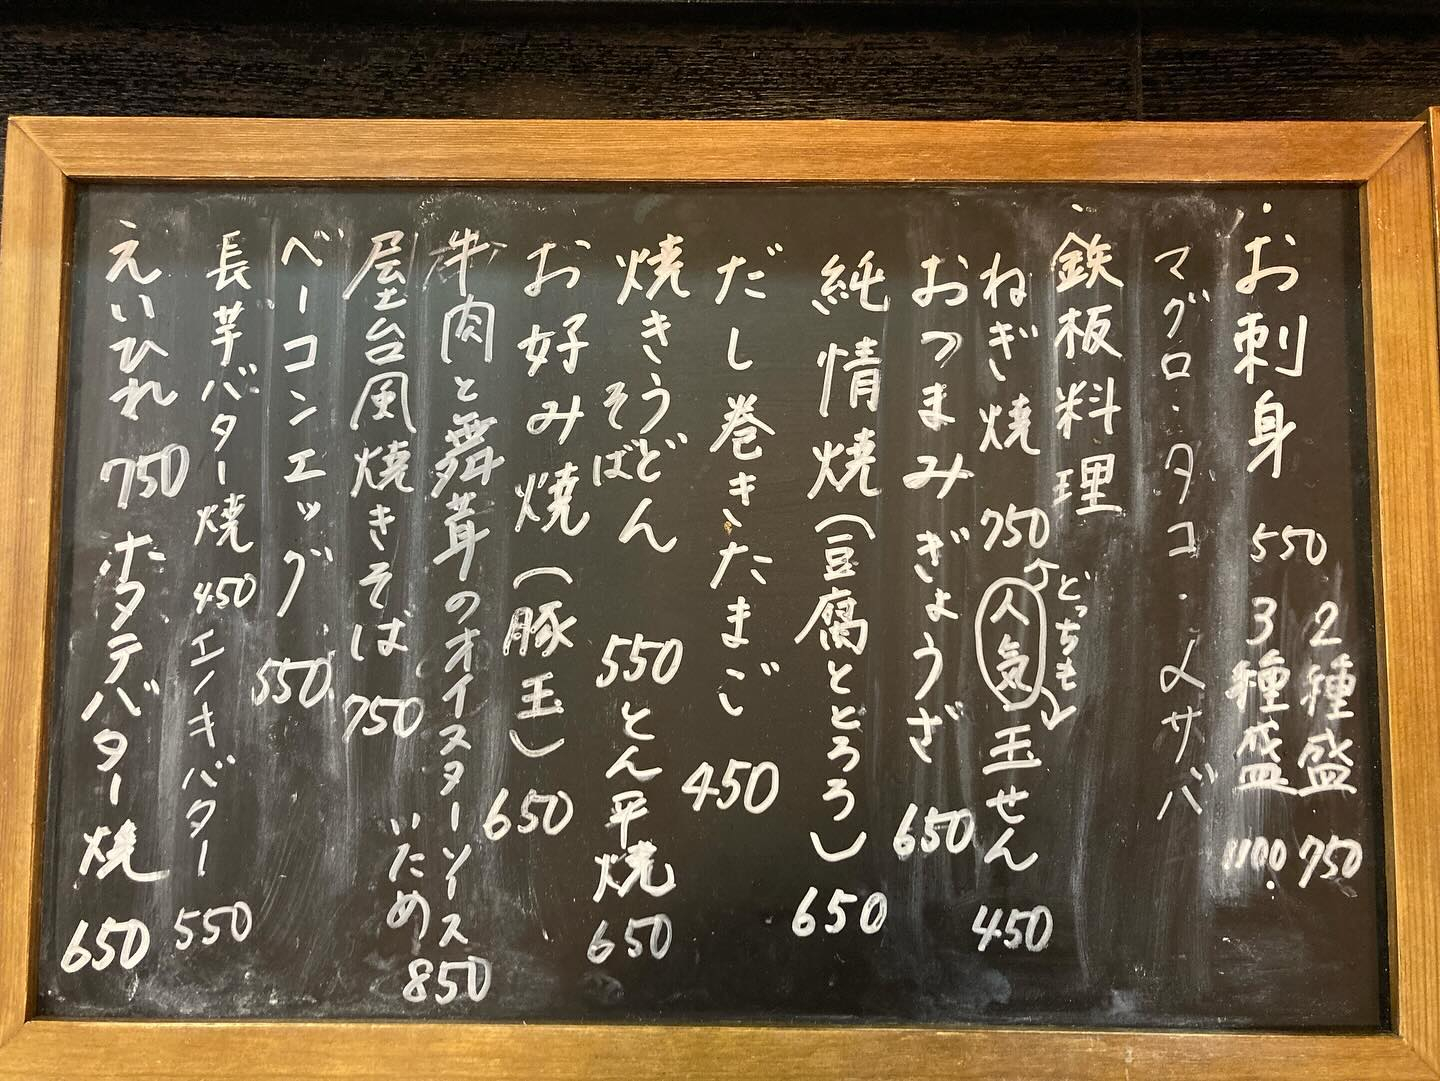 お刺身 550 2種盛 750
3種盛 1100
マグロ・タコ・〆サバ
鉄板料理
ねぎ焼 750 人気 どっちも 玉せん 450
おつまみぎょうざ 650
純情焼(豆腐ととろろ) 650
だし巻きたまご 450
焼きうどん 550 とん平焼 650
そば
お好み焼(豚玉) 650
牛肉と舞茸のオイスターソース
いため 850
屋台風焼きそば 750
ベーコンエッグ 550
長芋バター焼 450 エノキバター 550
えいひれ 750 ホタテバター焼 650